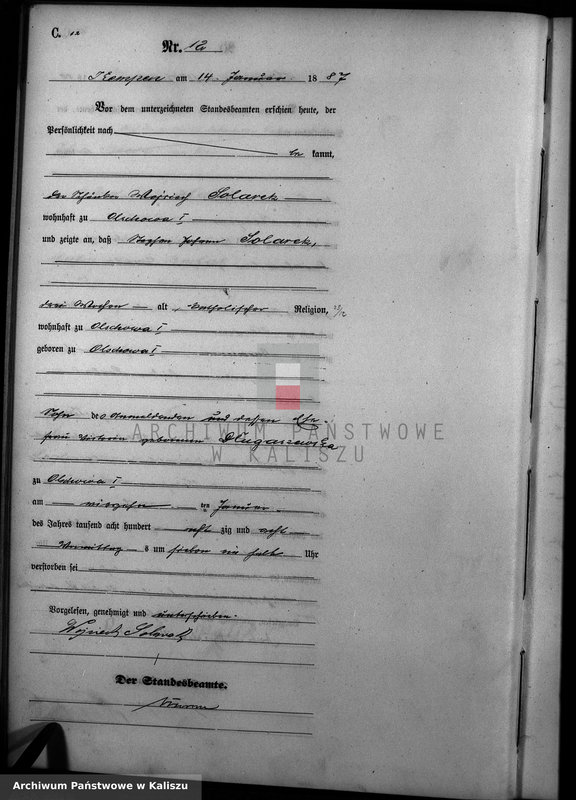 C. 12
Nr. 12
Kempen am 14. Januar 1887
Vor dem unterzeichneten Standesbeamten erschien heute, der
Persönlichkeit nach
be kannt,
der Wojciech Solarek
wohnhaft zu Olschowa I
und zeigte an, daß Johann Solarek,
drei Wochen alt, katholischer Religion,
wohnhaft zu Olschowa I
geboren zu Olschowa I
Sohn des Anmeldenden und dessen Ehe-
frau geborenen Dlugaszewska
ARCHIWUM PAŃSTWOWE
W KALISZU
zu Olschowa I
am vierzehn ten Januar
des Jahres tausend acht hundert acht zig und
Vormittag s um sieben ein halb Uhr
verstorben sei
Vorgelesen, genehmigt und unterschrieben.
Wojciech Solarek
Der Standesbeamte.
Archiwum Państwowe w Kaliszu